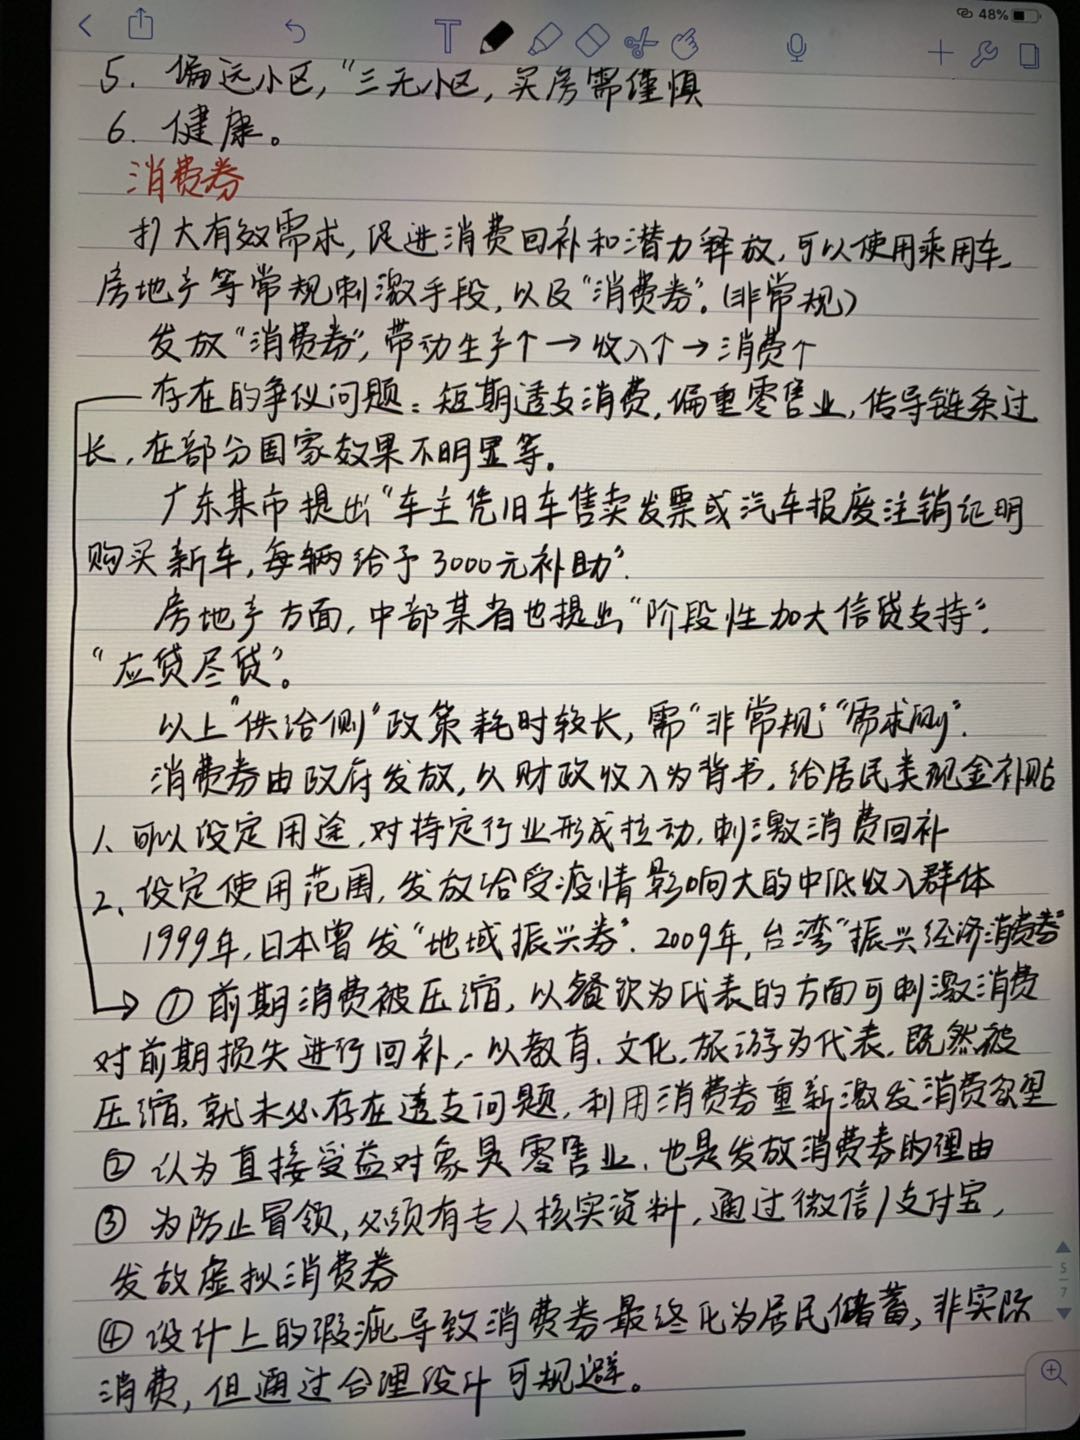 48%
5. 偏远小区,"三无小区,买房需谨慎
6. 健康。
消费券
扩大有效需求,促进消费回补和潜力释放,可以使用乘用车、
房地产等常规刺激手段,以及"消费券"。(非常规)
发放"消费券",带动生产↑→收入↑→消费↑
存在的争议问题:短期透支消费,偏重零售业,传导链条过
长,在部分国家效果不明显等。
广东某市提出"车主凭旧车售卖发票或汽车报废注销证明
购买新车,每辆给予3000元补助".
房地产方面,中部某省也提出"阶段性加大信贷支持".
"应贷尽贷"。
以上"供给侧"政策耗时较长,需"非常规""需求侧".
消费券由政府发放,以财政收入为背书,给居民类现金补贴
1、可以设定用途,对特定行业形成拉动,刺激消费回补
2、设定使用范围,发放给受疫情影响大的中低收入群体
1999年,日本曾发"地域振兴券".2009年,台湾"振兴经济消费券"
→①前期消费被压缩,以餐饮为代表的方面可刺激消费
对前期损失进行回补,以教育、文化、旅游为代表,既然被
压缩,就未必存在透支问题,利用消费券重新激发消费欲望
②认为直接受益对象是零售业,也是发放消费券的理由
③为防止冒领,必须有专人核实资料,通过微信/支付宝,
发放虚拟消费券
④设计上的瑕疵导致消费券最终化为居民储蓄,非实际
消费,但通过合理设计可规避。
5
7